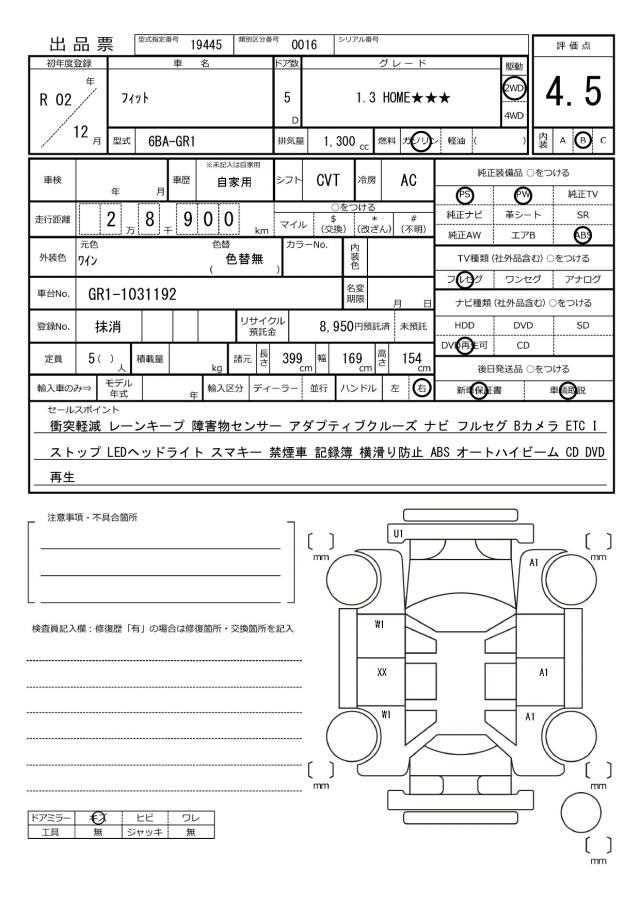 出品票 型式指定番号 19445 類別区分番号 0016 シリアル番号
評価点
4.5
内装 A B C
初年度登録 車名 ドア数 グレード 駆動
R 02 年 12 月
フィット
5 D
1.3 HOME★★★
2WD
4WD
型式 6BA-GR1 排気量 1,300 cc 燃料 ガソリン 軽油 ( )
車検 年 月 車歴 ※未記入は自家用 自家用 シフト CVT 冷房 AC
純正装備品 ○をつける
PS PW 純正TV
純正ナビ 革シート SR
純正AW エアB ABS
走行距離 2 万 8 千 9 0 0 km
○をつける
マイル $(交換) *(改ざん) #(不明)
外装色 元色 ワイン 色替 ( 色替無 ) カラーNo. 内装色
TV種類 (社外品含む) ○をつける
フルセグ ワンセグ アナログ
車台No. GR1-1031192 名変期限 月 日
ナビ種類 (社外品含む) ○をつける
HDD DVD SD
DVD再生可 CD
登録No. 抹消 リサイクル預託金 8,950円預託済 未預託
定員 5 ( ) 人 積載量 kg 諸元 長さ 399 cm 幅 169 cm 高さ 154 cm
後日発送品 ○をつける
新車保証書 車輌取説
輸入車のみ⇒ モデル年式 年 輸入区分 ディーラー 並行 ハンドル 左 右
セールスポイント
衝突軽減 レーンキープ 障害物センサー アダプティブクルーズ ナビ フルセグ Bカメラ ETC I
ストップ LEDヘッドライト スマキー 禁煙車 記録簿 横滑り防止 ABS オートハイビーム CD DVD
再生
注意事項・不具合箇所
検査員記入欄：修復歴「有」の場合は修復箇所・交換箇所を記入
U1
[ ] mm
[ ] mm
A1
W1
XX
A1
W1
A1
[ ] mm
[ ] mm
[ ] mm
ドアミラー キズ ヒビ ワレ
工具 無 ジャッキ 無